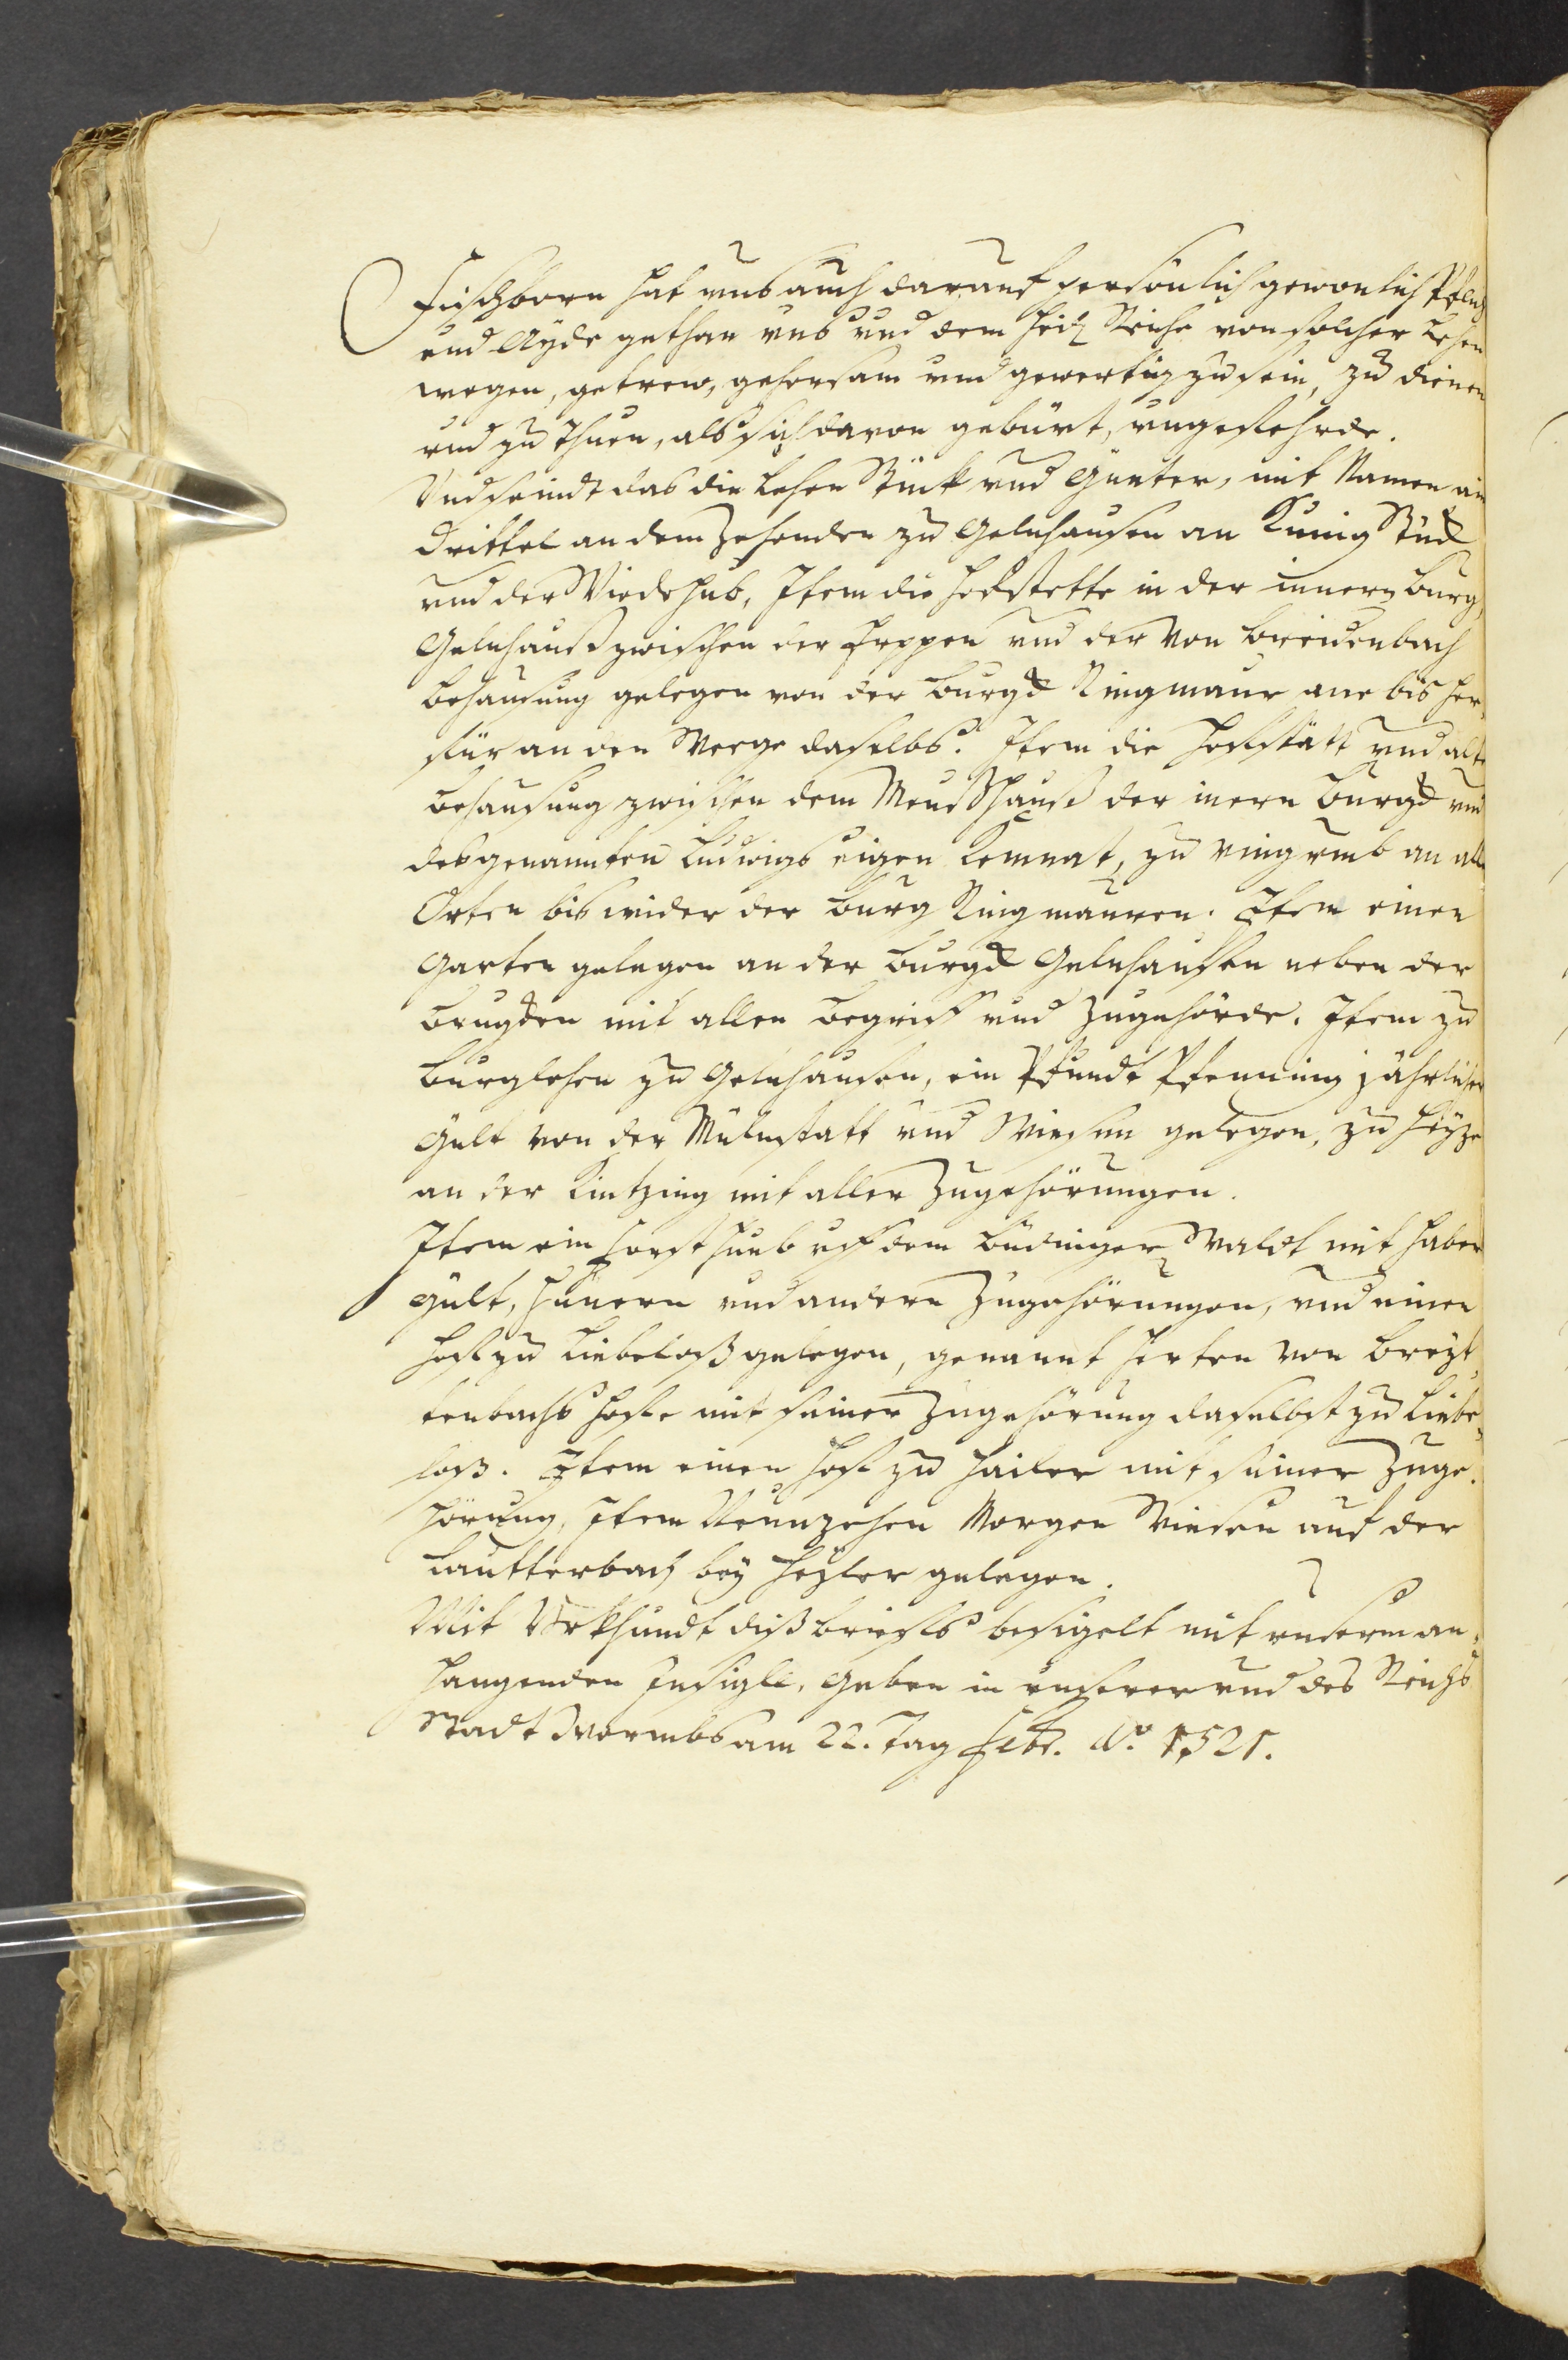 Fischborn hat uns auch darauf persönlich gewonlich Pflicht
und Ayde gethan uns und dem Heil. Reiche von solcher Lehen
wegen, getrew, gehorsam und gewertig zu sein, zu dienen
und zu thuen, als sich davon gebürt, ungeffehrde.
Und seindt das die Lehen Stück und Günter, mit Namen ein
drittel an dem Zehenden zu Gelnhausen an Kunig Stück
und der Wiedehub, Item die Hofstette in der innern Burg
Gelnhauß zwischen der Forppen und der von Breidenbach
behausung gelegen von der Burgk Ringmaur ane bis her,
für an den Weege daselbs. Item die Hoffstätt und alte
behausung zwischen dem Meußhauß der inern Burgk und
des genannten Ludwigs eigen Kemnat, zu ringumb an alle
Orten bis wider der Burg Ringmauren. Item einen
Garten gelegen an der Burgk Gelnhausen neben der
Brugken mit allen begriff und Zugehörde. Item zu
Burglehen zu Gelnhausen, ein Pfundt Pfenning jährlicher
Gült von der Mülnstatt und Wiesen gelegen, zu
an der Kintzing mit aller Zugehörungen.
Item ein Forsthueb uff dem Büdinger Waldt mit haber
gült, hünern und andern Zugehörungen, und einen
Hoff zu Liebeloß gelegen, genannt Herten von Breyt,
tenbachs Hoffe mit seiner Zugehörung daselbst zu Liebe,
loß. Item einen Hoff zu Hailer mit seiner Zuge,
hörung, Item Neunzehen Morgen Wiesen auf der
Lautterbach bey Heyler gelegen.
Mit Urkhundt diß brieffs besigelt mit unserm an,
hangenden Insigll, Geben in unserer und des Reichs
Stadt Wormbs am 22. Tag Febr. Ao. 1521.